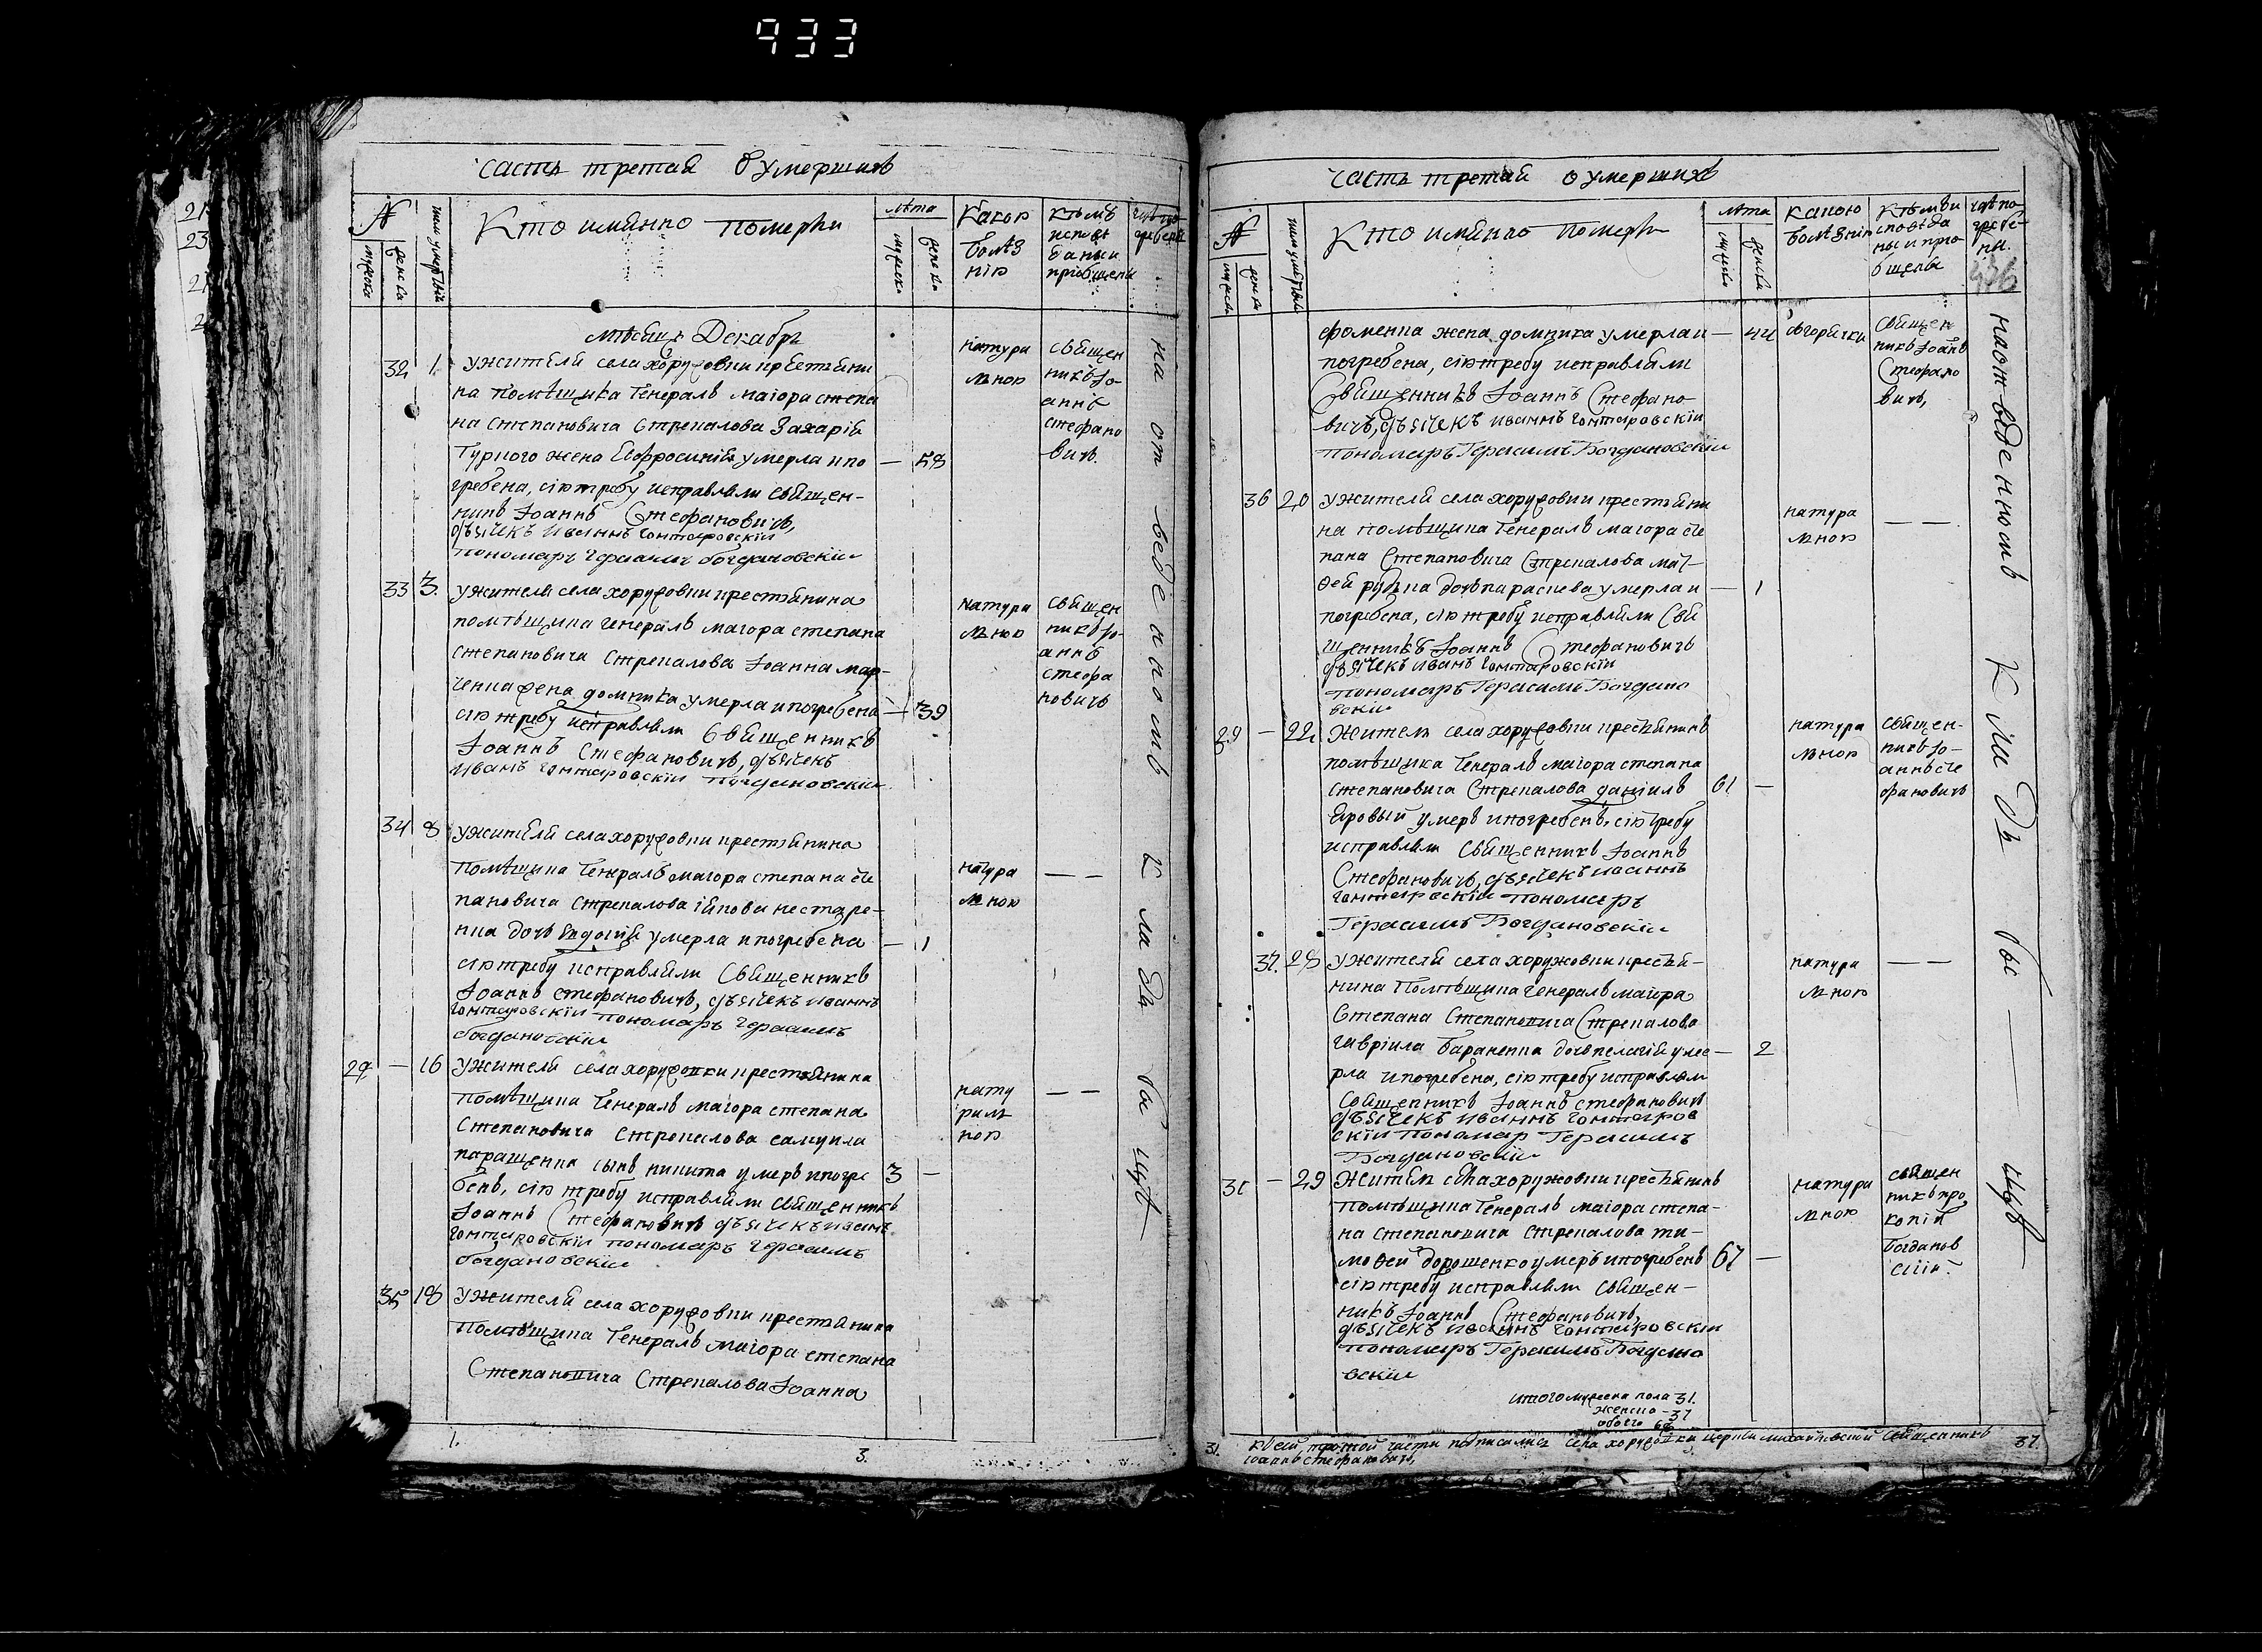 933
часть третая о умерших
часть третая о умершихъ
№
мужеска
женска
число умертвій
Кто имянно померли
лѣта
мужеска
женска
Какою
болѣз
нію
кѣмъ
исповѣ
даны и
приобщены
гдѣ по
гребены
мѣсяцъ Декабрь
32 1. у жителя села хоружовки крестяни
на помѣщика Генералъ маіора степа
на Степановича Стрекалова Захарія
Турчого жена Евфросинія умерла и по — 58
гребена, сію требу исправляли священ-
никъ Іоаннъ Стефановичъ,
дъячекъ Иваннъ Гонтаровскіи
пономаръ Герасимъ богдановскіи
натура
льною
священ
никъ Іо-
аннъ
стефано
вичъ.
33 3. у жителя села хоружовки крестянина
помѣщика генералъ маіора степана
степановича Стрекалова Іоанна мар-
ченка жена домника умерла и погребена — 39
сію требу исправляли Священникъ
Іоаннъ Стефановичъ, дъячекъ
Иванъ Гонтаровскіи Богдановскіи
натура
льною
священ
никъ Іо-
аннъ
стефа
новичъ
34 8 у жителя села хоружовки крестянина
помѣщика Генералъ маіора степана Сте
пановича Стрекалова нестере-
нка дочь Евдокія умерла и погребена — 1
сію требу исправляли Священникъ
Іоаннъ стефановичъ, дъячекъ Иваннъ
Гонтаровскіи пономаръ Герасимъ
богдановскіи
натура
льною
— —
29 — 16 у жителя села хоружовки крестянина
помѣщика Генералъ маіора степана
Степановича Стрекалова самуила
паращенка сынъ никита умеръ и погре 3 —
бенъ, сію требу исправляли священникъ
Іоаннъ Стефановичъ дъячекъ Иванъ
Гонтаровскіи пономаръ Герасимъ
богдановскіи
нату
раль
ною
— —
35 18 у жителя села хоружовки крестянина
помѣщика Генералъ маіора степана
Степановича Стрекалова Іоанна
на отведенномъ кладбищѣ
1.
3.
№
мужеска
женска
Кто имянно померли
лѣта
мужеска
женска
какою
болѣзнію
кѣмъ и
сповѣда
ны и прио
бщены
гдѣ по-
гребе-
ны.
фоменка жена домника умерла и — 44
погребена, сію требу исправляли
Священникъ Іоаннъ Стефано-
вичъ, дъячекъ Иваннъ Гонтаровскіи
пономаръ Герасимъ Богдановскіи
отгорячки
Священ
никъ Іоаннъ
Стефано
вичъ,
36 20 у жителя села хоружовки крестяни
на помѣщика Генералъ маіора сте
пана Степановича Стрекалова мат-
ѳея дочь параскева умерла и — 1
погребена, сію требу исправляли Свя
щенникъ Іоаннъ Стефановичъ
дъячекъ Иванъ Гонтаровскіи
пономаръ Герасимъ Богдано
вскіи
натура
льною
— —
29 — 22 Житель села хоружовки крестянинъ
помѣщика Генералъ маіора степана
степановича Стрекалова даніилъ 61 —
яровый умеръ и погребенъ, сію требу
исправляли Священникъ Іоаннъ
Стефановичъ, дъячекъ Иваннъ
Гонтаровскіи пономаръ
Герасимъ Богдановскіи
натура
льною
священ-
никъ Іо-
аннъ Сте
фановичъ
37. 28 у жителя села хоружовки крестя-
нина помѣщика Генералъ маіора
Степана Степановича Стрекалова
гавріила бараненка дочь пелагія уме- — 2
рла и погребена, сію требу исправляли
Священникъ Іоаннъ стефановичъ
дъячекъ Иваннъ Гонтаров
скіи пономар Герасимъ
Богдановскіи
натура
льною
— —
31 — 29 Житель села хоружовки крестянинъ
помѣщика Генералъ маіора степа-
на степановича Стрекалова ти-
моѳей дорошенко умеръ и погребенъ 67 —
сію требу исправляли Священ-
никъ Іоаннъ Стефановичъ,
дъячекъ Иваннъ Гонтаровскіи
пономаръ Герасимъ Богдано
вскіи
натура
льною
священ
никъ про
копій
богданов
скій.
на отведенномъ кладбищѣ
итого мужеска пола 31.
женска — 37
обоего 68
31. к сей третой части подписался Села хоружовки церкви михайловской священникъ 37
Іоаннъ стефановичъ,